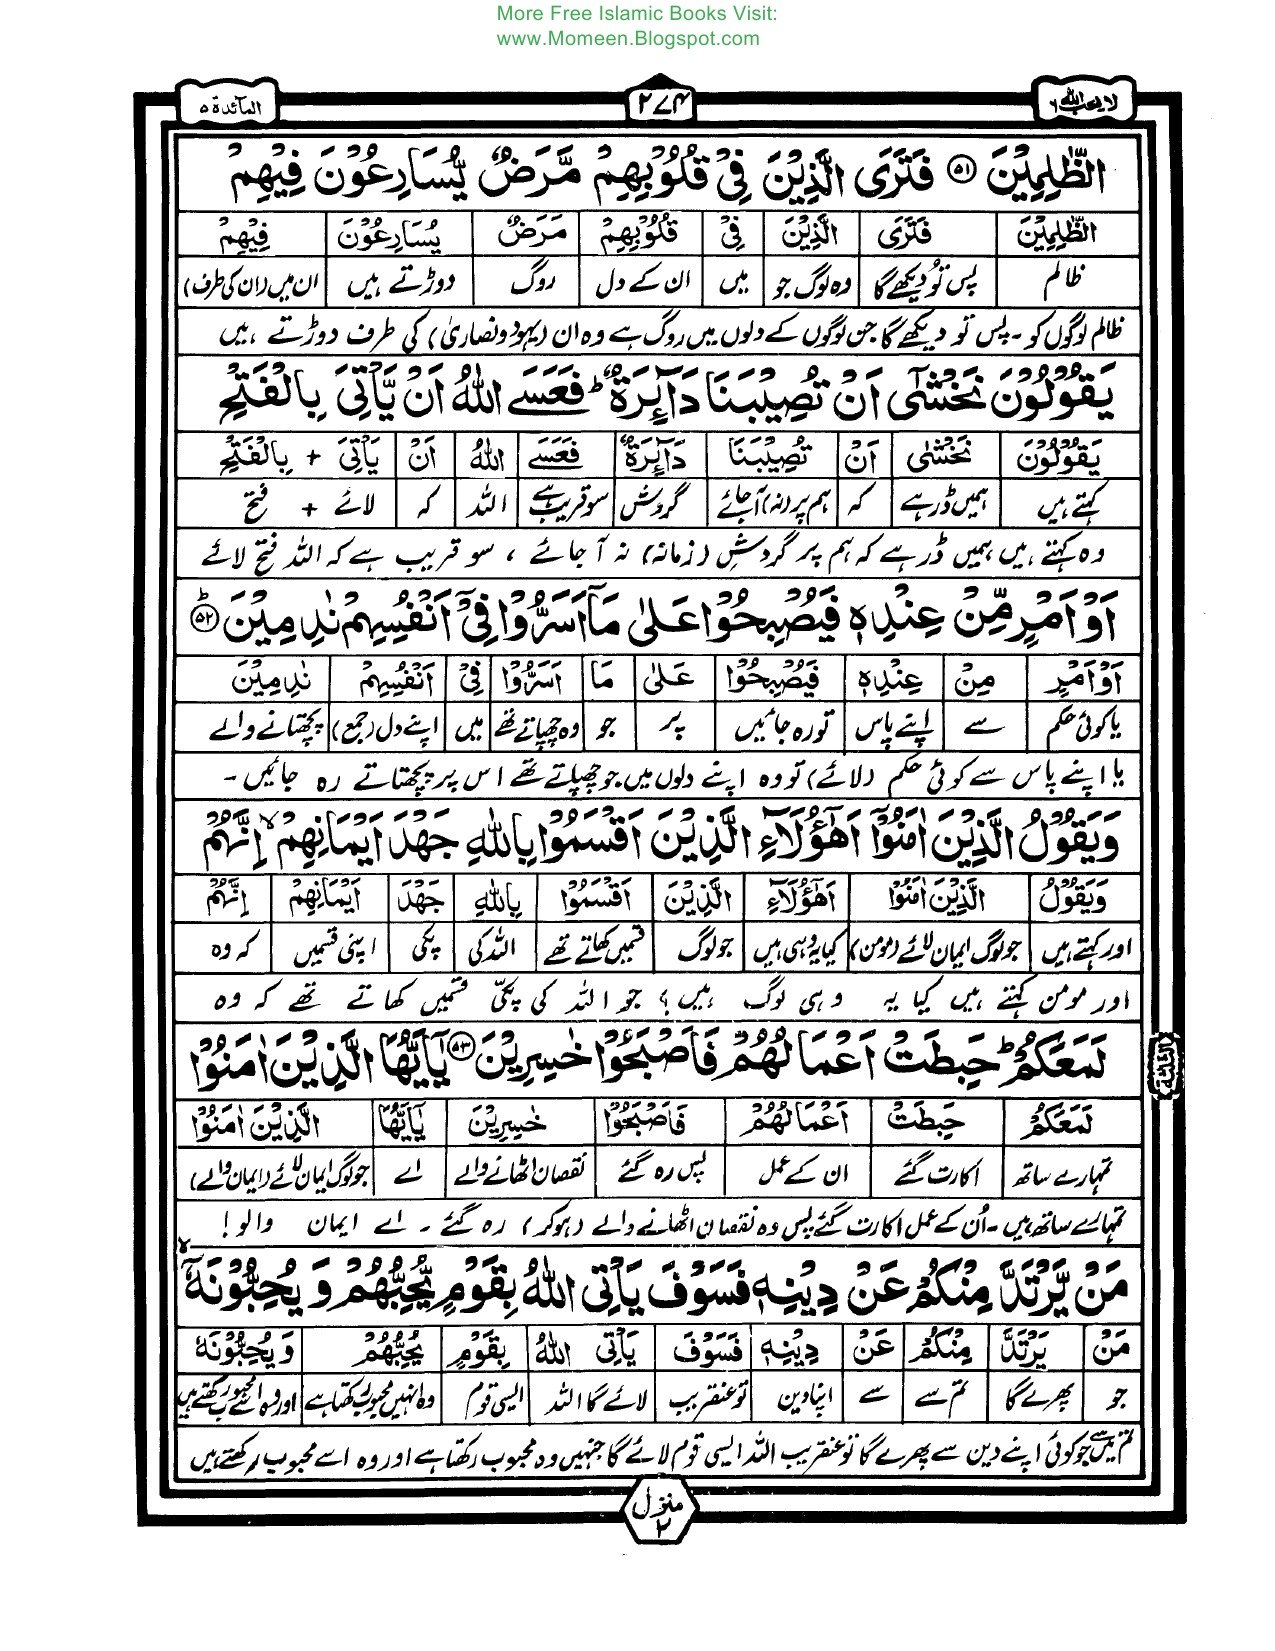 More Free Islamic Books Visit:
www.Momeen.Blogspot.com
لا یحب اللہ ٦ ٢٧٤ المآئدة ٥
الظّٰلِمِیْنَ ۝۵۱ فَتَرَی الَّذِیْنَ فِیْ قُلُوْبِهِمْ مَّرَضٌ یُّسَارِعُوْنَ فِیْهِمْ
الظّٰلِمِیْنَ فَتَرَی الَّذِیْنَ فِیْ قُلُوْبِهِمْ مَرَضٌ یُسَارِعُوْنَ فِیْهِمْ
ظالم پس تو دیکھے گا وہ لوگ جو میں ان کے دل روگ دوڑتے ہیں ان میں (ان کی طرف)
ظالم لوگوں کو - پس تو دیکھے گا جن لوگوں کے دلوں میں روگ ہے وہ ان (یہود و نصاریٰ) کی طرف دوڑتے ہیں
یَقُوْلُوْنَ نَخْشٰۤی اَنْ تُصِیْبَنَا دَآئِرَةٌ ؕ فَعَسَے اللّٰهُ اَنْ یَّاْتِیَ بِالْفَتْحِ
یَقُوْلُوْنَ نَخْشٰی اَنْ تُصِیْبَنَا دَآئِرَةٌ فَعَسَے اللّٰهُ اَنْ یَاْتِیَ + بِالْفَتْحِ
کہتے ہیں ہمیں ڈر ہے کہ ہم پر (نہ) آجائے گردش سو قریب ہے اللہ کہ لائے + فتح
وہ کہتے ہیں ہمیں ڈر ہے کہ ہم پر گردشِ (زمانہ) نہ آ جائے ، سو قریب ہے کہ اللہ فتح لائے
اَوْ اَمْرٍ مِّنْ عِنْدِهٖ فَیُصْبِحُوْا عَلٰی مَاۤ اَسَرُّوْا فِیْۤ اَنْفُسِهِمْ نٰدِمِیْنَ ۝۵۲ ؕ
اَوْ اَمْرٍ مِنْ عِنْدِهٖ فَیُصْبِحُوْا عَلٰی مَا اَسَرُّوْا فِیْ اَنْفُسِهِمْ نٰدِمِیْنَ
یا کوئی حکم سے اپنے پاس تو رہ جائیں پر جو وہ چھپاتے تھے میں اپنے دل (جمع) پچھتانے والے
یا اپنے پاس سے کوئی حکم (لائے) تو وہ اپنے دلوں میں جو چھپاتے تھے اس پر پچھتاتے رہ جائیں -
وَیَقُوْلُ الَّذِیْنَ اٰمَنُوْۤا اَهٰۤؤُلَآءِ الَّذِیْنَ اَقْسَمُوْا بِاللّٰهِ جَهْدَ اَیْمَانِهِمْ ۙ اِنَّهُمْ
وَیَقُوْلُ الَّذِیْنَ اٰمَنُوْا اَهٰۤؤُلَآءِ الَّذِیْنَ اَقْسَمُوْا بِاللّٰهِ جَهْدَ اَیْمَانِهِمْ اِنَّهُمْ
اور کہتے ہیں جو لوگ ایمان لائے (مومن) کیا یہ وہی ہیں جو لوگ قسمیں کھاتے تھے اللہ کی پکی اپنی قسمیں کہ وہ
اور مومن کہتے ہیں کیا یہ وہی لوگ ہیں؟ جو اللہ کی پکّی قسمیں کھاتے تھے کہ وہ
لَمَعَكُمْ ؕ حَبِطَتْ اَعْمَالُهُمْ فَاَصْبَحُوْا خٰسِرِیْنَ ۝۵۳ یٰۤاَیُّهَا الَّذِیْنَ اٰمَنُوْا
لَمَعَكُمْ حَبِطَتْ اَعْمَالُهُمْ فَاَصْبَحُوْا خٰسِرِیْنَ یٰۤاَیُّهَا الَّذِیْنَ اٰمَنُوْا
تمہارے ساتھ اکارت گئے ان کے عمل پس رہ گئے نقصان اٹھانے والے اے جو لوگ ایمان لائے (ایمان والے)
تمہارے ساتھ ہیں - اُن کے عمل اکارت گئے پس وہ نقصان اٹھانے والے (ہو کر) رہ گئے - اے ایمان والو!
الثلثة
مَنْ یَّرْتَدَّ مِنْكُمْ عَنْ دِیْنِهٖ فَسَوْفَ یَاْتِی اللّٰهُ بِقَوْمٍ یُّحِبُّهُمْ وَ یُحِبُّوْنَهٗۤ ۙ
مَنْ یَرْتَدَّ مِنْكُمْ عَنْ دِیْنِهٖ فَسَوْفَ یَاْتِی اللّٰهُ بِقَوْمٍ یُحِبُّهُمْ وَیُحِبُّوْنَهٗ
جو پھرے گا تم سے سے اپنا دین تو عنقریب لائے گا اللہ ایسی قوم وہ انہیں محبوب رکھتا ہے اور وہ اسے محبوب رکھتے ہیں
تم میں سے جو کوئی اپنے دین سے پھرے گا تو عنقریب اللہ ایسی قوم لائے گا جنہیں وہ محبوب رکھتا ہے اور وہ اسے محبوب رکھتے ہیں
منزل ٢